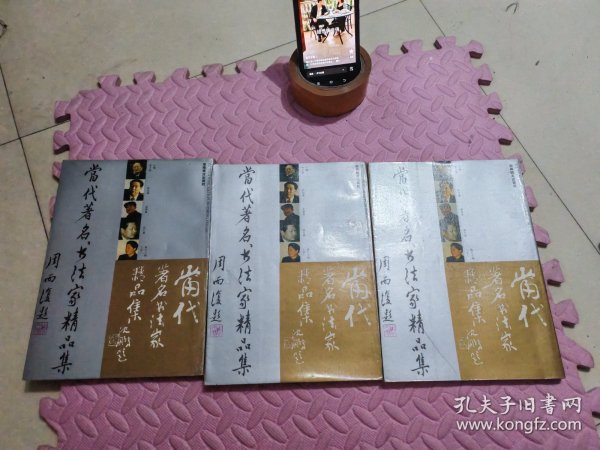 當代著名书法家精品集
周而復題
當代
著名书法家
精品集
沈鹏题
當代著名书法家精品集
周而復題
當代
著名书法家
精品集
沈鹏题
當代著名书法家精品集
周而復題
當代
著名书法家
精品集
沈鹏题
孔夫子旧书网
www.kongfz.com